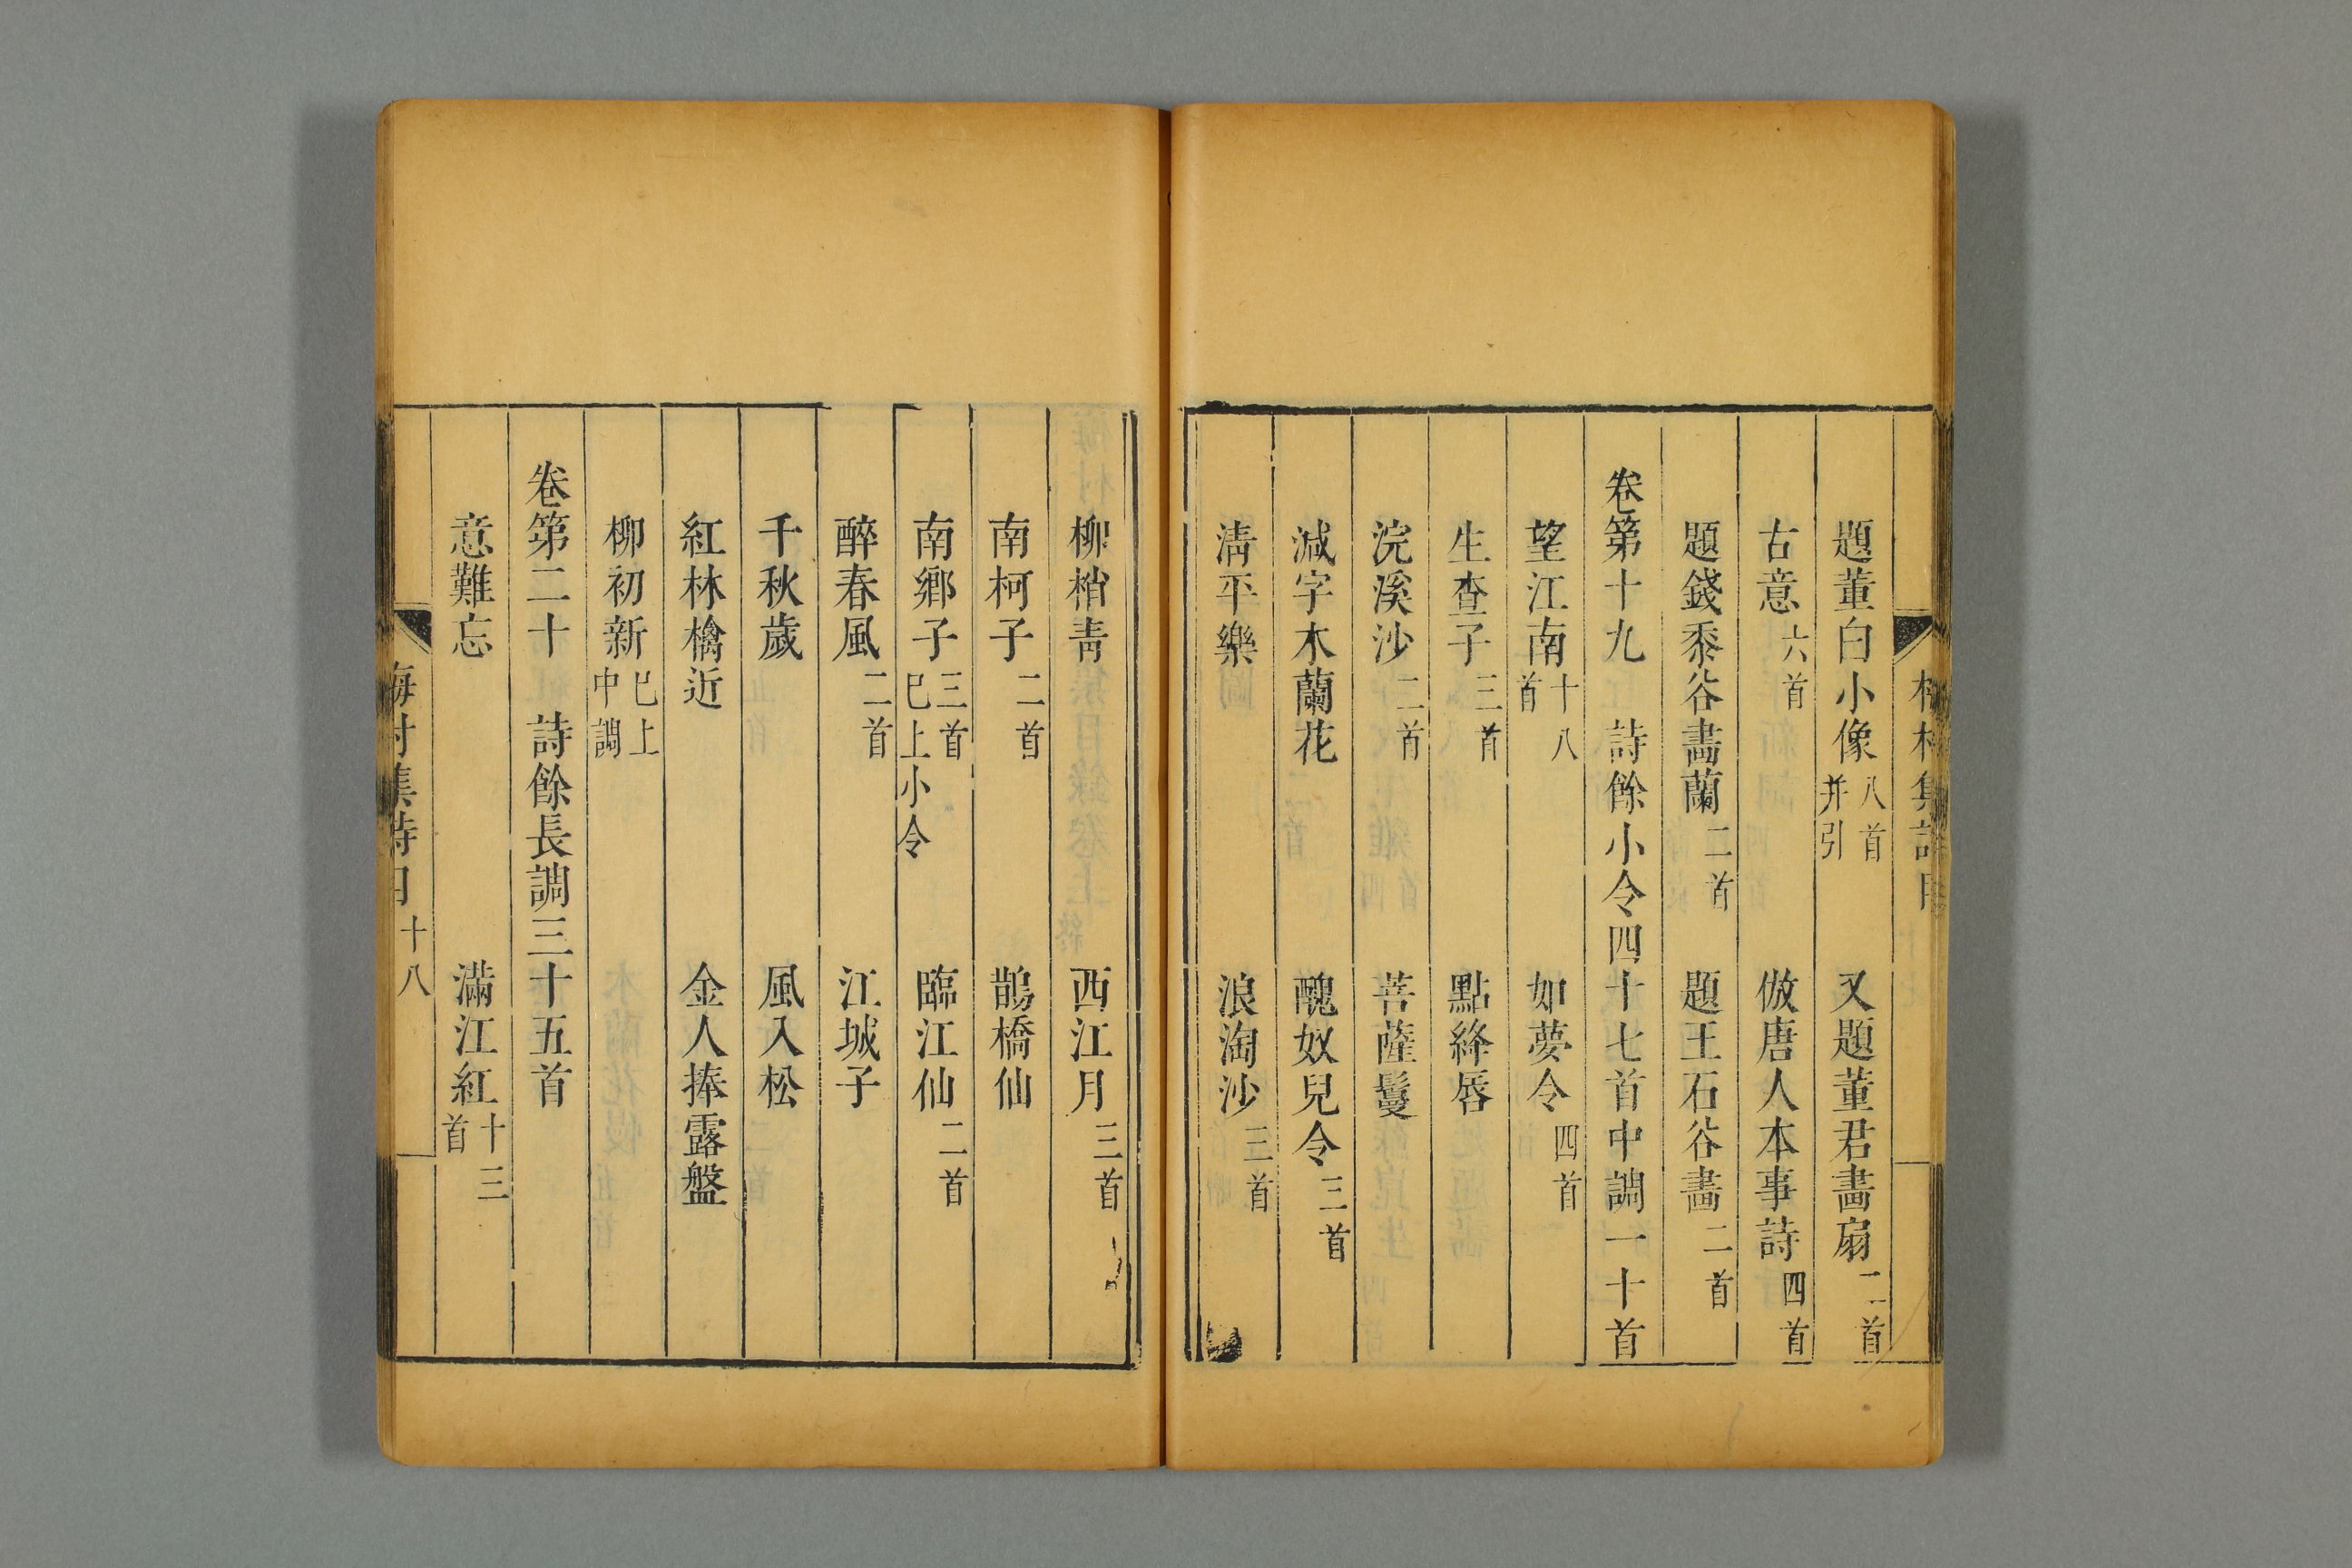 題董白小像八首并引　又題董君畫扇二首
古意六首　倣唐人本事詩四首
題錢黍谷畫蘭二首　題王石谷畫二首
卷第十九　詩餘小令四十七首中調一十首
望江南十八首　如夢令四首
生查子三首　點絳唇
浣溪沙二首　菩薩鬘
減字木蘭花　醜奴兒令三首
清平樂　浪淘沙三首
柳梢青　西江月三首
南柯子二首　鵲橋仙
南鄉子三首　臨江仙二首
已上小令
醉春風二首　江城子
千秋歲　風入松
紅林檎近　金人捧露盤
柳初新已上中調
卷第二十　詩餘長調三十五首
意難忘　滿江紅十三首
梅村集詩目　十八